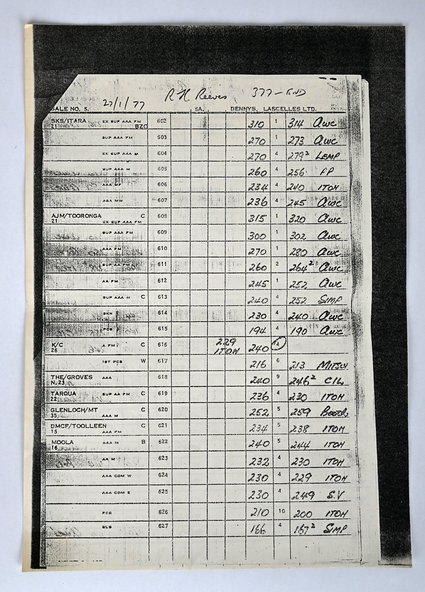 R H Reeves 377 - END
SALE NO. 5. 27/1/77 SA. DENNYS, LASCELLES LTD.
SKS/ITARA EX SUP AAA FM 602 310 1 314 AWC
21 BZC
SUP AAA FM 603 270 1 273 AWC
EX SUP AAA M 604 270 4 279² LEMP
SUP AAA M 605 260 4 256 FP
AAA MF 606 234 4 240 ITOH
AAA MM 607 236 4 245 AWC
AJM/TOORONGA C 608 315 1 320 AWC
21 EX SUP AAA FM
SUP AAA FM 609 300 1 302 AWC
AAA FM 610 270 1 280 AWC
611 260 2 264² AWC
AA FM 612 245 1 252 AWC
SUP AAA M C 613 240 4 252 SIMP
614 230 4 240 AWC
615 194 4 190 AWC
K/C A FM C 616 229 240
26 ITOH
1ST PCS W 617 216 6 213 MITSU
THE/GROVES AAA 618 240 9 246² CIL
N.23
TAROUA SUP AA FM C 619 236 4 230 ITOH
22
GLENLOCH/MT C 620 252 5 259
35 AAA M
DMCF/TOOLLEEN C 621 234 5 238 ITOH
15 AAA FM
MOOLA AAA M B 622 240 5 244 ITOH
16
AA M 623 232 4 230 ITOH
AAA COM M 624 230 4 229 ITOH
AAA COM E 625 230 4 249 S.V
PCS 626 210 10 200 ITOH
BLS 627 166 4 167² SIMP